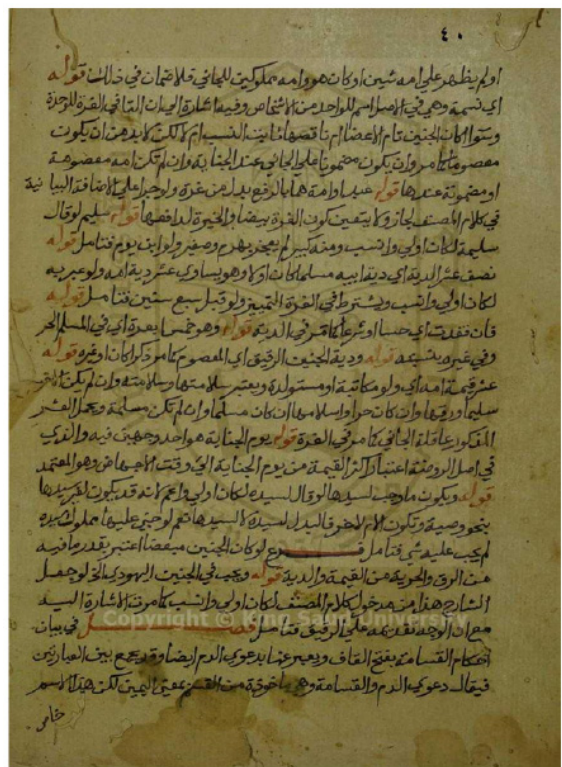 ٤٠
اولم يظهر علي امه شين او كان هو وامه مملوكين للجاني فلا ضمان في ذلك قوله
اي نسمة وهي في الاصل اسم للواحد من الاشخاص وفيه اشارة الي ان التا في الغرة للوحدة
وسوا كان الجنين تام الاعضا ام ناقصها ثابت النسب ام لا لكن لابد من ان يكون
معصوما كما مر وان يكون مضمونا علي الجاني عند الجناية وان لم تكن امه معصومة
او مضمونة عندها قوله عبد او امة هما بالرفع بدل من غرة ولو جرا علي الاضافة البيانية
في كلام المصنف لجاز ولا يتعين كون الغرة بيضا والخيرة لدافعها قوله سليم لو قال
سليمة لكان اولي وانسب ومنه كبير لم يعجز بهرم وصغير ولو ابن يوم فتامل قوله
نصف عشر الدية اي دية ابيه مسلما كان اولا وهو يساوي عشر دية امه ولو عبر به
لكان اولي وانسب ويشترط في الغرة التمييز ولو قبل سبع سنين فتامل قوله
فان فقدت اي حسا او شرعا كما مر في الدية قوله وهو خمس ابعرة اي في المسلم الحر
وفي غيره بنسبته قوله ودية الجنين الرقيق اي المعصوم كما مر ذكرا كان او غيره قوله
عشر قيمة امه اي ولو مكاتبة او مستولدة ويعتبر سلامتها وسلامته وان لم يكن الاخر
سليما ورقها وان كان حرا واسلامها ان كان مسلما وان لم تكن مسلمة وتحمل العشر
المذكور عاقلة الجاني كما مر في الغرة قوله يوم الجناية هو احد وجهين فيه والذي
في اصل الروضة اعتبار اكثر القيمة من يوم الجناية الي وقت الاجهاض وهو المعتمد
قوله ويكون ما وجب لسيدها لو قال لسيده لكان اولي واعم لانه قد يكون لغير سيدها
بنحو وصية وتكون الام لاخر فالبدل لسيده لا لسيدها نعم لو جني عليها مملوك لسيده
لم يجب عليه شي فتامل فرع لو كان الجنين مبعضا اعتبر بقدر ما فيه
من الرق والحرية من القيمة والدية قوله ويجب في الجنين اليهودي الخ لو جعل
الشارح هذا من مدخول كلام المصنف لكان اولي وانسب كما مرت الاشارة اليه
مع ان الوجه تقديمه علي الرقيق فتامل فصل في بيان
احكام القسامة بفتح القاف ويعبر عنها بدعوي الدم ايضا وقد يجمع بين العبارتين
فيقال دعوي الدم والقسامة وهي ماخوذة من القسم بمعني اليمين لكن هذا الاسم
خاص
Copyright © King Saud University